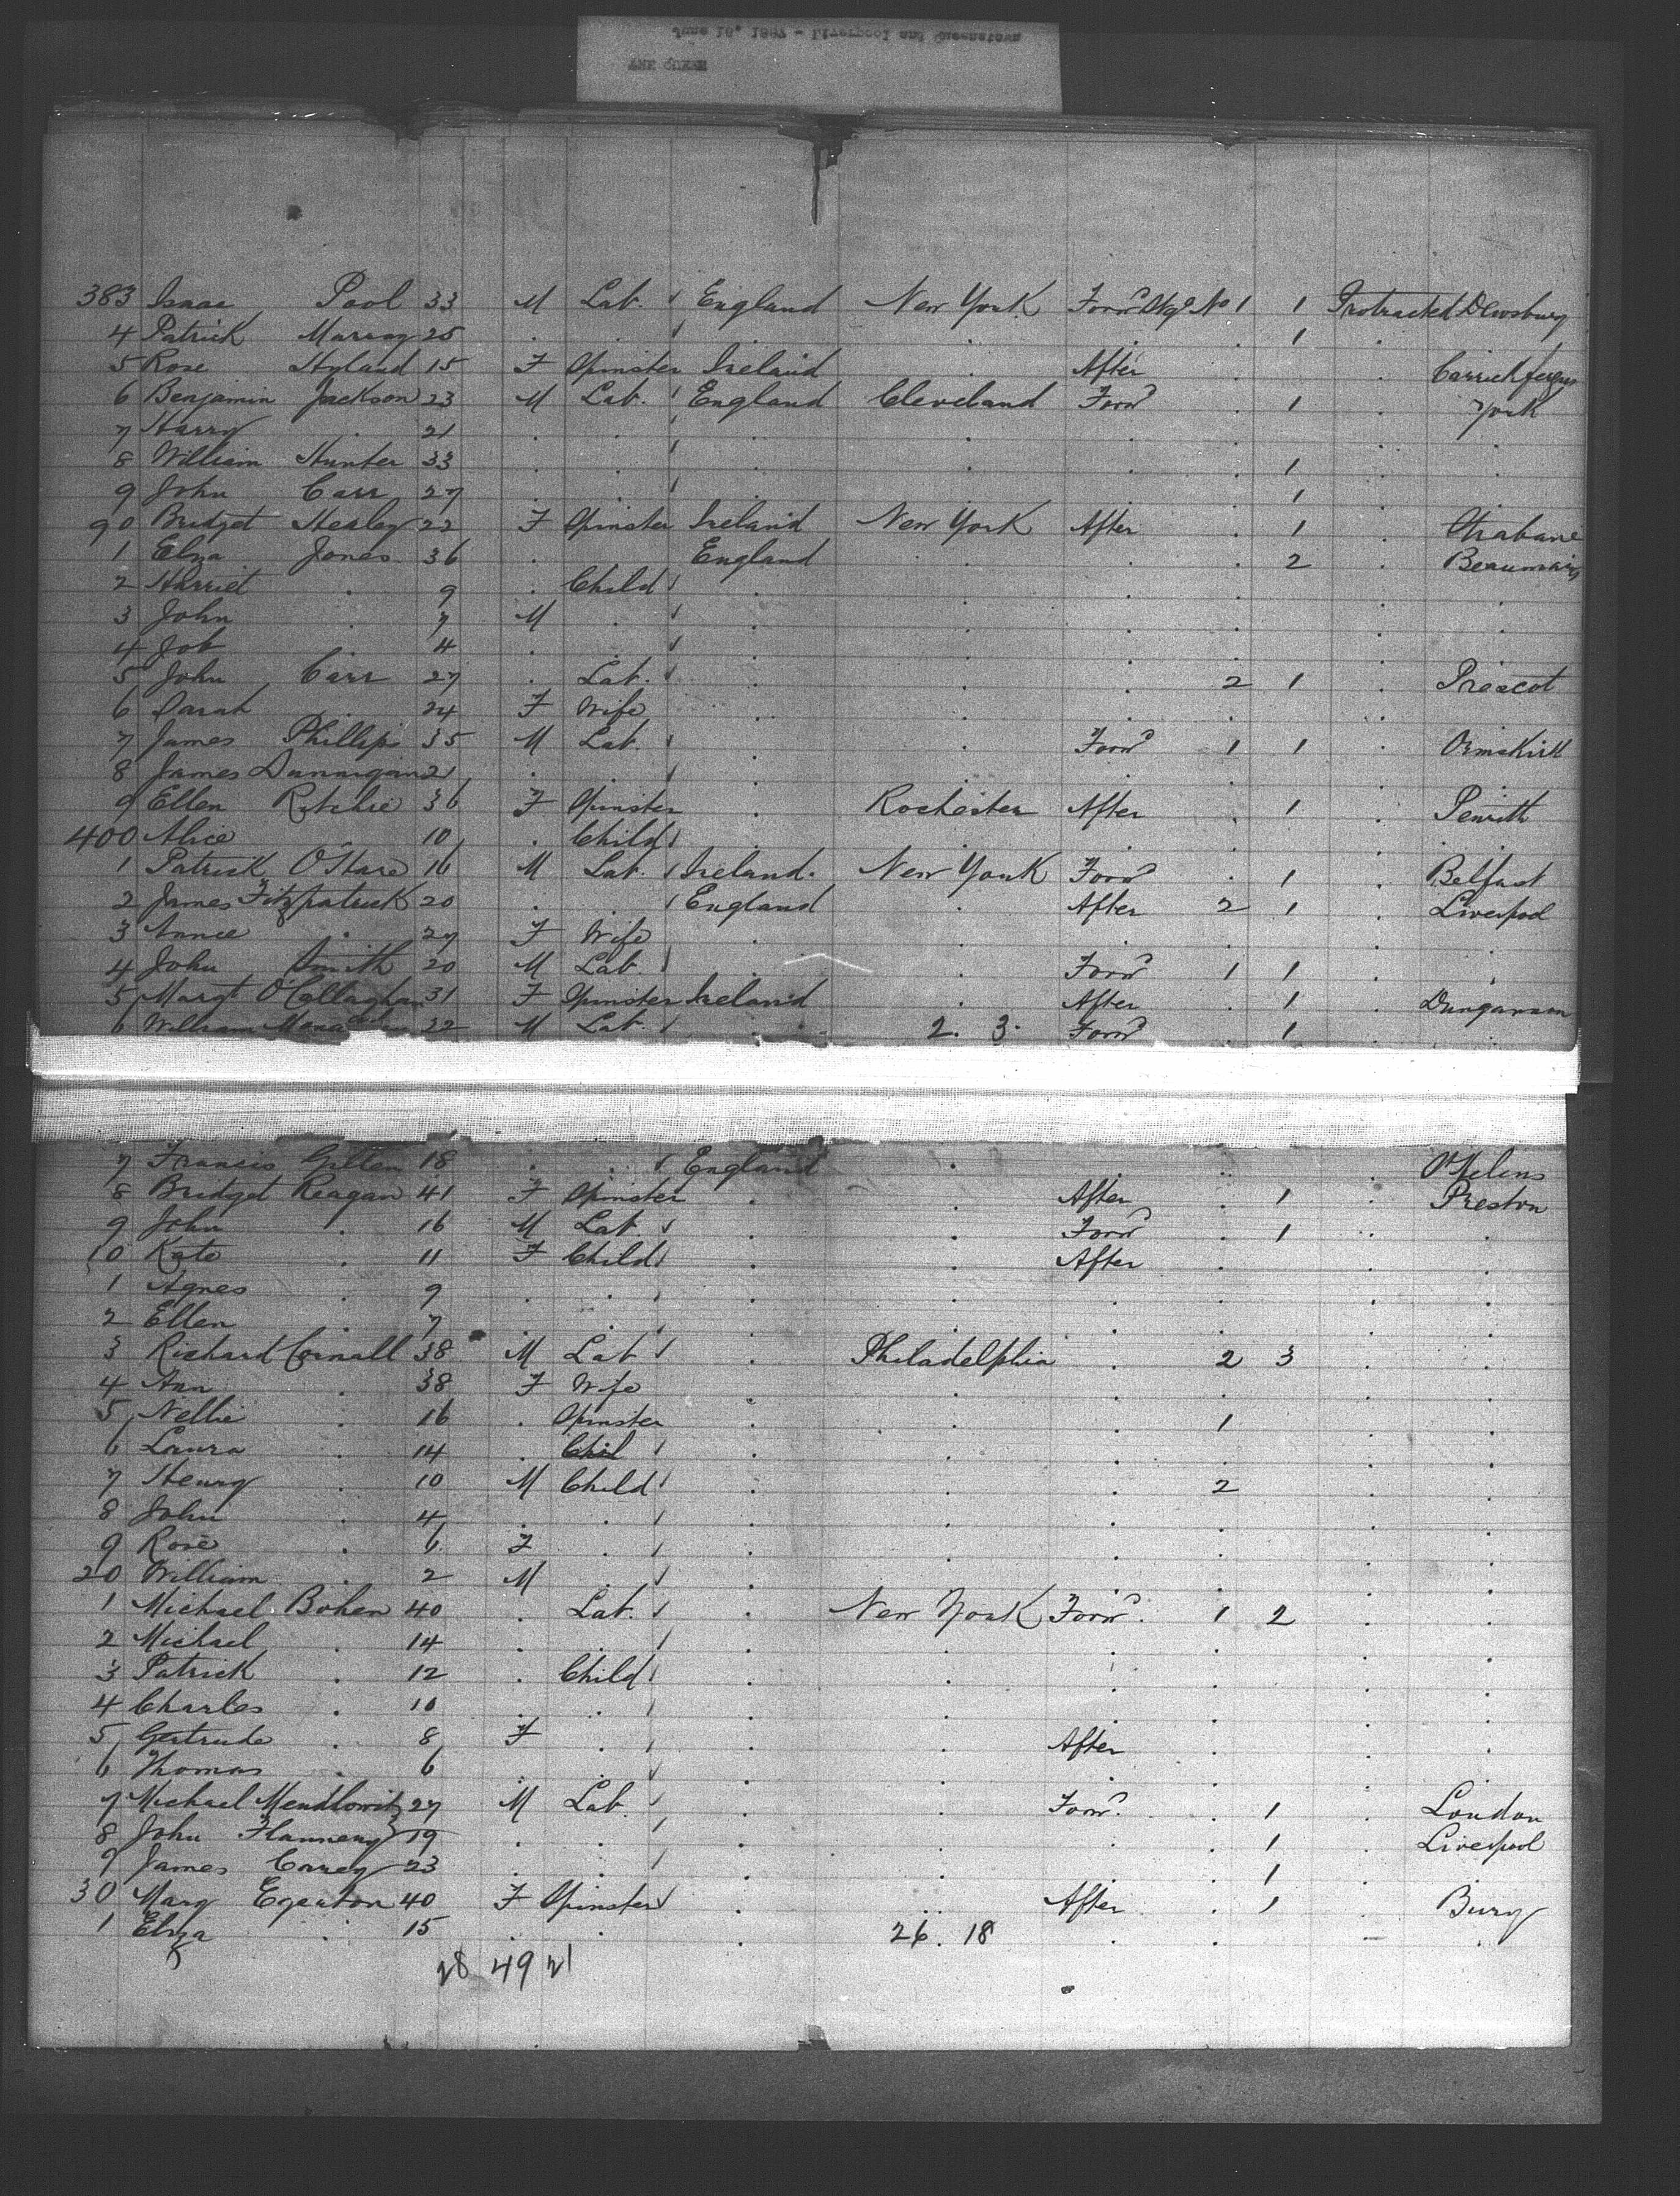 June 16, 1887 - Liverpool and Queenstown
THE QUEEN
383 Isaac Pool 33 M Lab. England New York Forwd No 1 1 Protracted Dewsbury
4 Patrick Murray 25 . . . . . 1 .
5 Rose Hyland 15 F Spinster Ireland . After . . Carrickfergus
6 Benjamin Jackson 23 M Lab. England Cleveland Forwd . 1 . York
7 Harry . 21 . . . . . . . .
8 William Hunter 33 . . . . . . 1 . .
9 John Carr 27 . . . . . . 1 . .
90 Bridget Healey 22 F Spinster Ireland New York After . 1 . Strabane
1 Eliza Jones 36 . England . . . 2 . Beaumaris
2 Harriet . 9 . Child . . . . . .
3 John . 7 M . . . . . . .
4 Job . 4 . . . . . . . .
5 John Carr 27 . Lab. . . . 2 1 . Prescot
6 Sarah . 24 F Wife . . . . . .
7 James Phillips 35 M Lab. . . Forwd 1 1 . Ormskirk
8 James Dunnigan 21 . . . . . . . .
9 Ellen Ritchie 36 F Spinster . Rochester After . 1 . Penrith
400 Alice . 10 . Child . . . . . .
1 Patrick O'Hare 16 M Lab. Ireland New York Forwd . 1 . Belfast
2 James Fitzpatrick 20 . . England . After 2 1 . Liverpool
3 . 27 F Wife . . . . . .
4 John Smith 20 M Lab . . Forwd 1 1 . .
5 Margt O'Callaghan 31 F Spinster Ireland . After . 1 . Dungannon
6 William 22 M Lab. . 2. 3. Forwd . 1 . .
7 Francis Gillen 18 . . England . . . . St Helens
8 Bridget Reagan 41 F Spinster . . After . 1 . Preston
9 John . 16 M Lab . . Forwd . 1 . .
10 Kate . 11 F Child . . After . . .
1 Agnes . 9 . . . . . . . .
2 Ellen . 7 . . . . . . . .
3 Richard Cornall 38 M Lab . Philadelphia . 2 3 . .
4 Ann . 38 F Wife . . . . . .
5 Nellie . 16 . Spinster . . . 1 . .
6 Laura . 14 . Chil . . . . . .
7 Henry . 10 M Child . . . 2 . .
8 John . 4 . . . . . . . .
9 Rose . 6 F . . . . . . .
20 William . 2 M . . . . . . .
1 Michael Bohen 40 . Lab. . New York Forwd 1 2 . .
2 Michael . 14 . . . . . . . .
3 Patrick . 12 . Child . . . . . .
4 Charles . 10 . . . . . . . .
5 Gertrude . 8 F . . . After . . .
6 Thomas . 6 . . . . . . .
7 Michael Mendlowitz 27 M Lab . . Forwd . 1 . London
8 John Flannery 19 . . . . . . 1 . Liverpool
9 James Carey 23 . . . . . . 1 . .
30 Mary Egerton 40 F Spinster . . After . 1 . Bury
1 Eliza . 15 . . . 26. 18 . . .
28 49 21